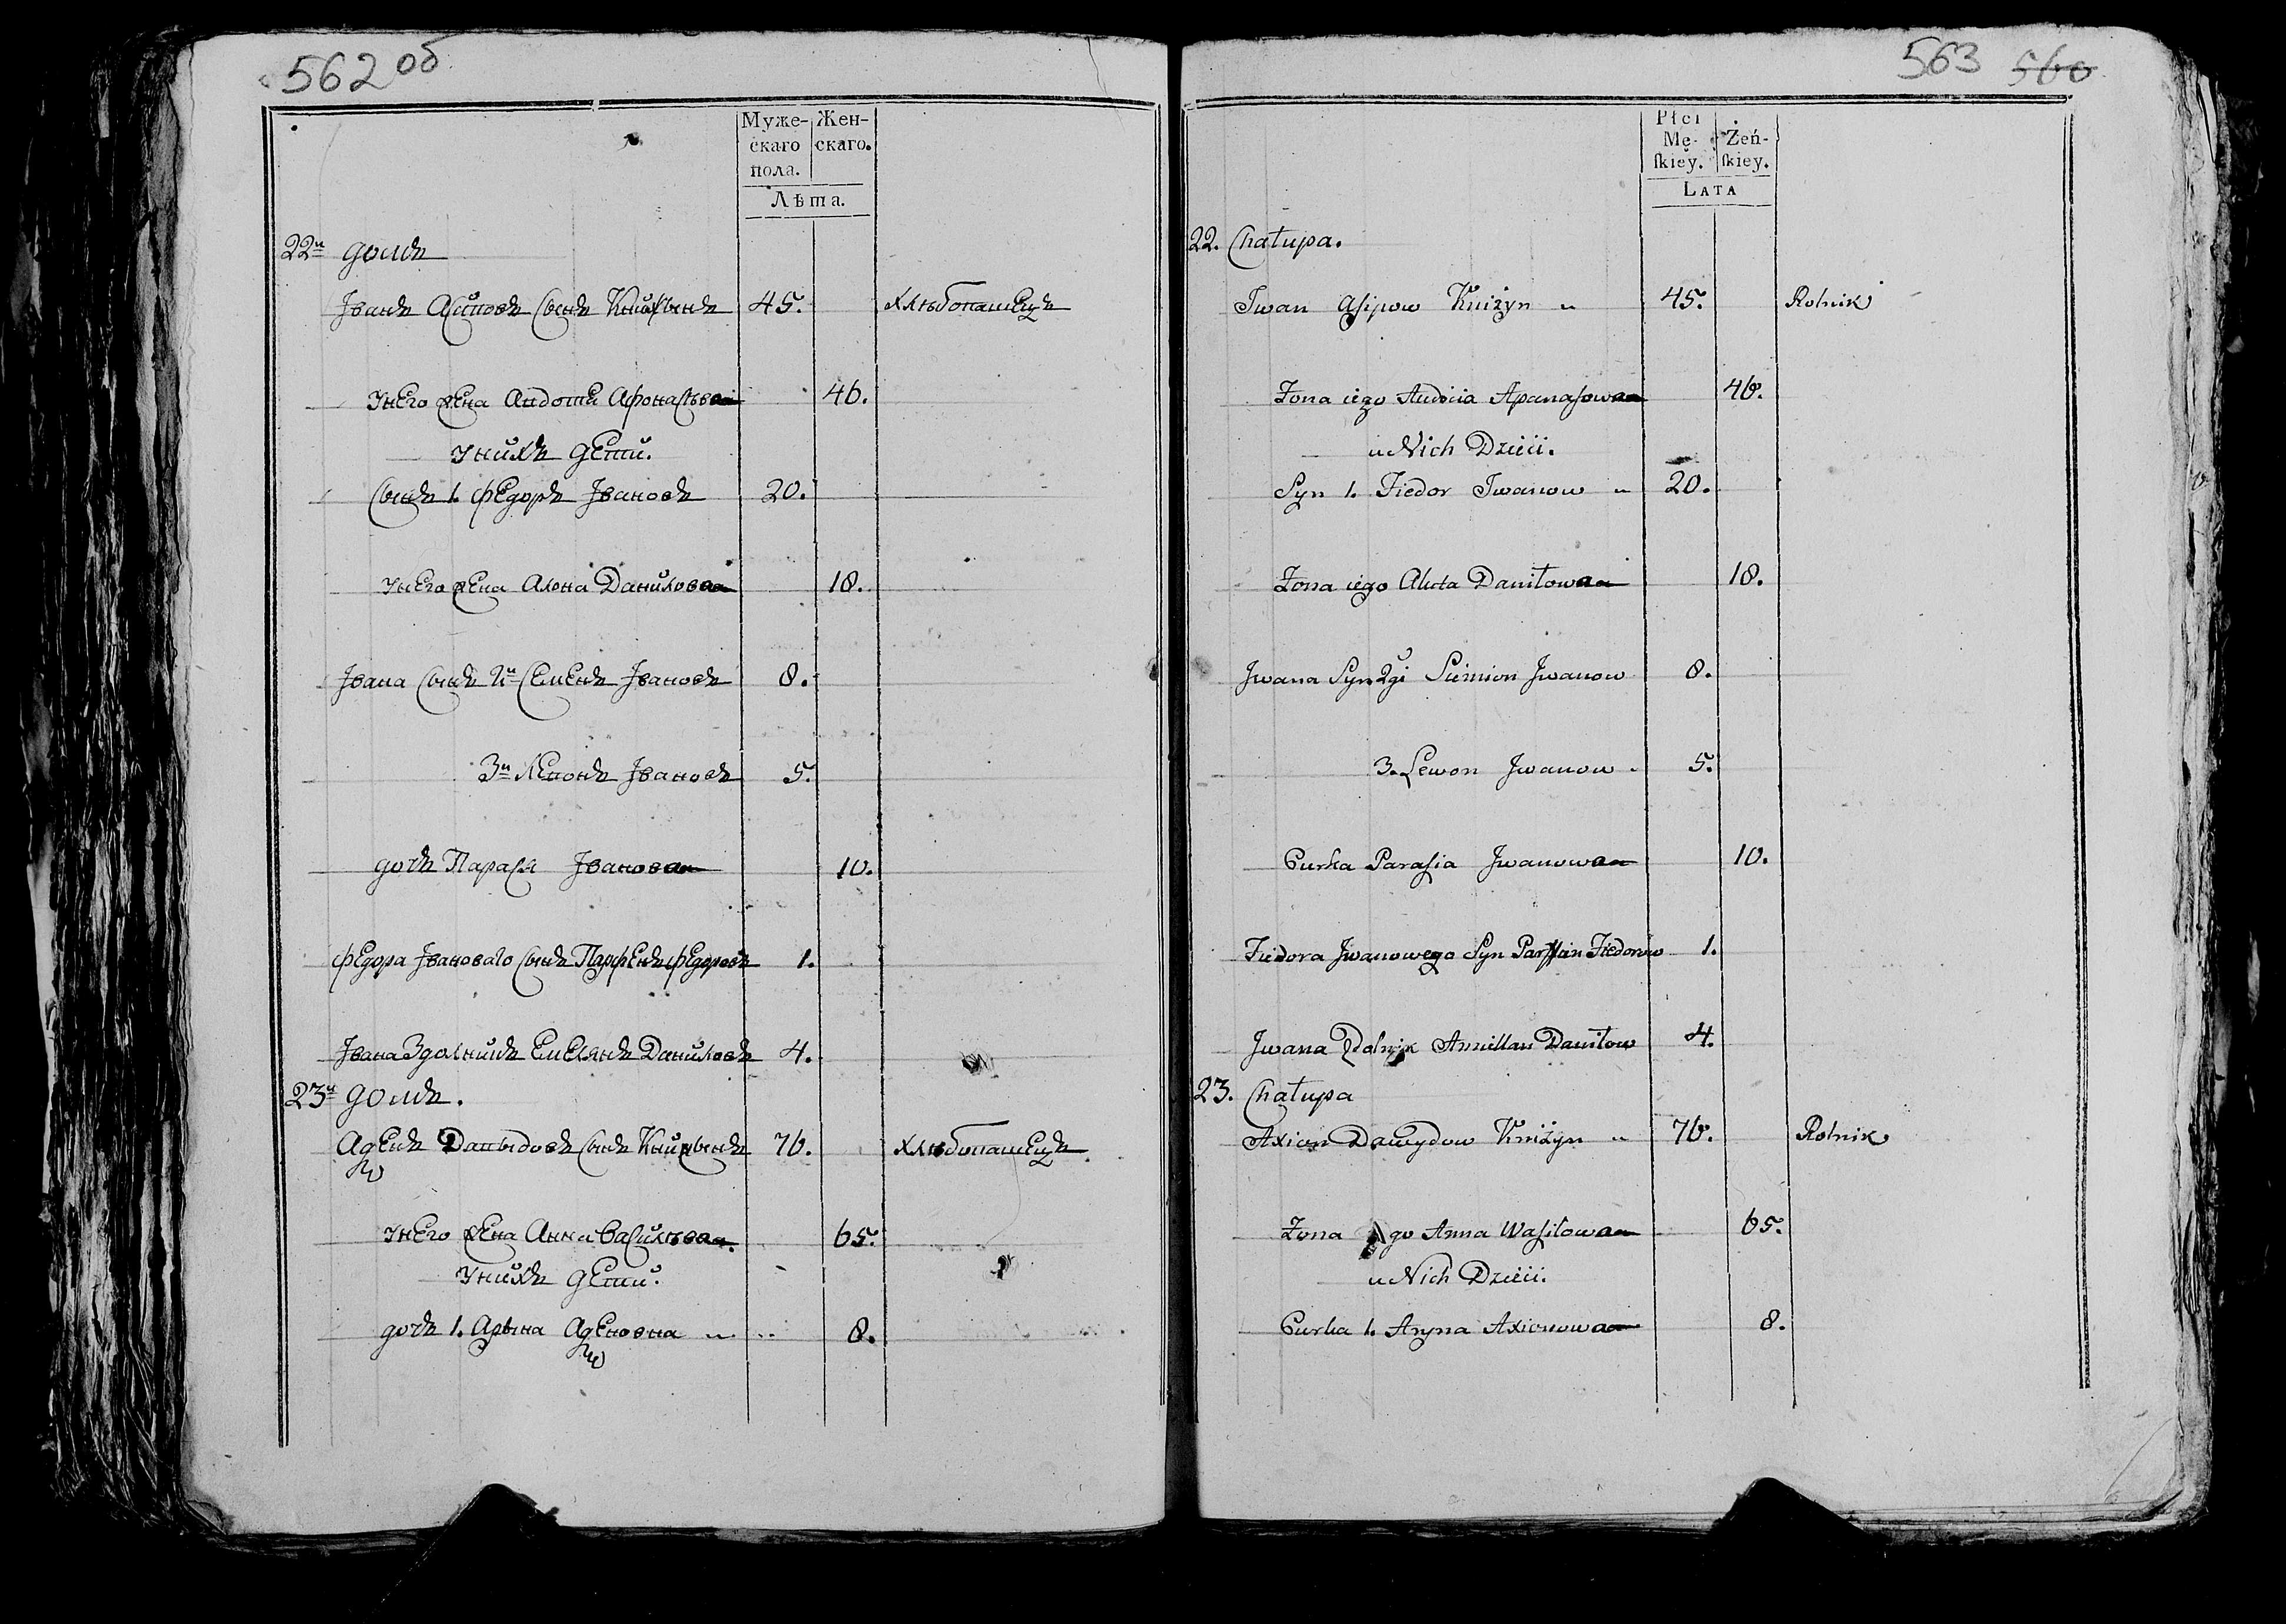 562 об
Муже-
скаго
пола.
Жен-
скаго.
Лѣта.
22й домъ
Іванъ Асиповъ сынъ Книжынъ 45. хлѣбопашецъ
унего жена Авдотя Афонасьева 46.
унихъ дети.
сынъ 1. Федоръ Івановъ 20.
унего жена Алена Данилова 18.
Івана сынъ 2й Семенъ Івановъ 8.
3й Левонъ Івановъ 5.
дочь Парася Іванова 10.
Федора Іванова сынъ Парфенъ Федоровъ 1.
Івана Здолникъ Емелянъ Даниловъ 4.
23й домъ.
Аѯенъ Давыдовъ сынъ Книжынъ 76. хлѣбопашецъ
унего жена Анна Васильева 65.
унихъ дети.
дочь 1. Арына Аѯеновна 8.
563 560
Płci
Mę-
ſkiey.
Żeń-
ſkiey.
LATA
22. Chałupa.
Iwan Asipow Kniżyn 45. Rolnik
Zona iego Audocia Apanasowa 46.
u Nich Dzieci.
Syn 1. Fiedor Iwanow 20.
Zona iego Alena Daniłowa 18.
Jwana Syn 2gi Siemion Jwanow 8.
3. Lewon Jwanow 5.
Curka Parasia Jwanowa 10.
Fiedora Jwanowego Syn Parffian Fiedorow 1.
Jwana Zdolnik Amillan Daniłow 4.
23. Chałupa
Axion Dawydow Kniżyn 76. Rolnik
Zona iego Anna Wasiłowa 65.
u Nich Dzieci.
Curka 1. Aryna Axionowa 8.